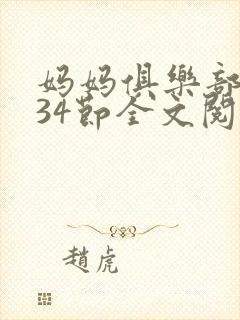 妈妈俱樂部
34節全文閱
趙虎